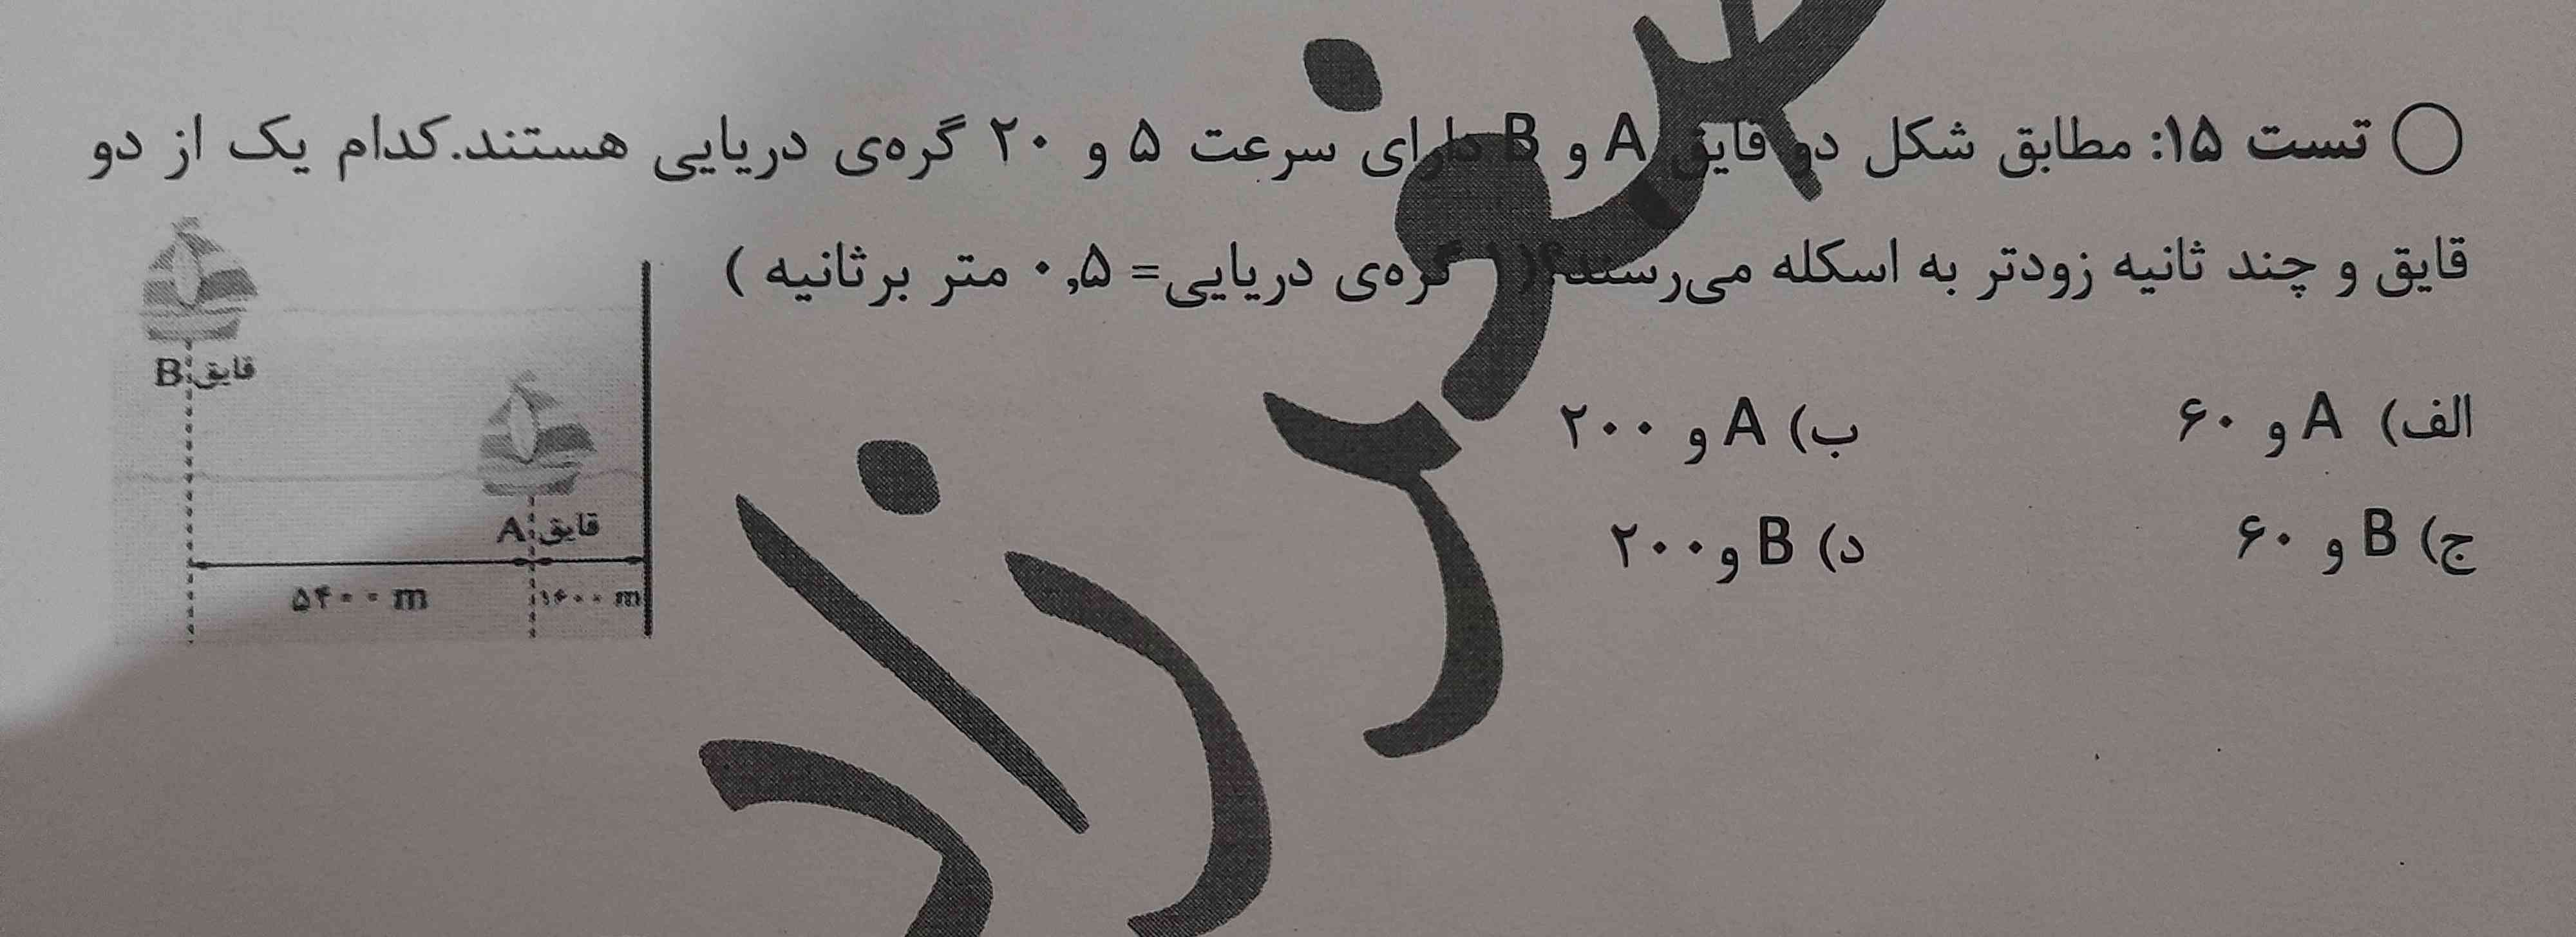 تست ۱۵: مطابق شکل دو قایق A و B دارای سرعت ۵ و ۲۰ گره‌ی دریایی هستند.کدام یک از دو
قایق و چند ثانیه زودتر به اسکله می‌رسند؟(۱ گره‌ی دریایی= ۰,۵ متر برثانیه )
الف) A و ۶۰
ب) A و ۲۰۰
ج) B و ۶۰
د) B و۲۰۰
قایق B
قایق A
۵۴۰۰ m
m